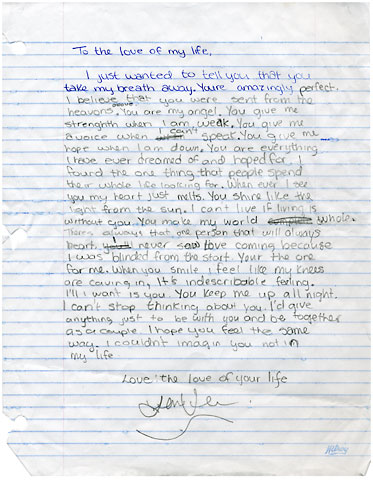 To the love of my life,
I just wanted to tell you that you
take my breath away. Youre amazingly perfect.
I believe that you were sent from the
above
heavons. You are my angel. You give
strenghth when I am weak. You give me
a voice when can't speak. You give me
hope when I am down. You are everything
I have ever dreamed of and hoped for. I
found the one thing that people spend
their whole life looking for. When ever I see
you my heart just melts. You shine like the
light from the sun. I can't live if living is
without you. You make my world whole.
Theres always that one person that will always
heart. never saw love coming because
I was blinded from the start. Your the one
for me. When you smile I feel like my knees
are caving in, It's indescribable feeling.
I'll I want is you. You keep me up all night.
I can't stop thinking about you. I'd give
anything just to be with you and be together
as a couple. I hope you feel the same
way. I couldnt imagin you not in
my life
Love the love of your life
Hilroy